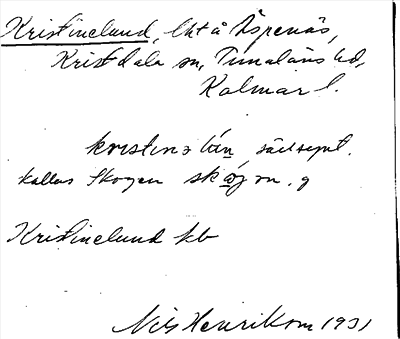 Kristinelund, lht å Äspenäs,
Kristdala sn, Tunaläns hd,
Kalmar l.
kristinə lúṇ, sällsynt.
kallas Skogen skǻgən. g
Kristinelund kb
Nils Henrikson 1931